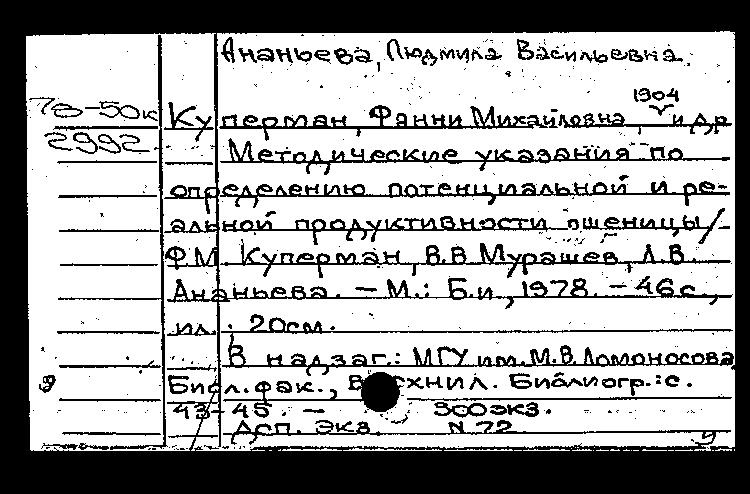 Ананьева, Людмила Васильевна.
1904
78-50к Куперман, Фанни Михайловна, и др
2992 Методические указания по
определению потенциальной и ре-
альной продуктивности пшеницы/
Ф.М. Куперман, В.В. Мурашев, Л.В.
Ананьева. - М.: Б.и, 1978. - 46 с.,
ил.; 20см.
В надзаг.: МГУ им. М.В. Ломоносова
Биол. фак., ВАСХНИЛ. Библиогр.: с.
43-45. - 300 экз.
Дсп. Экз. N 72